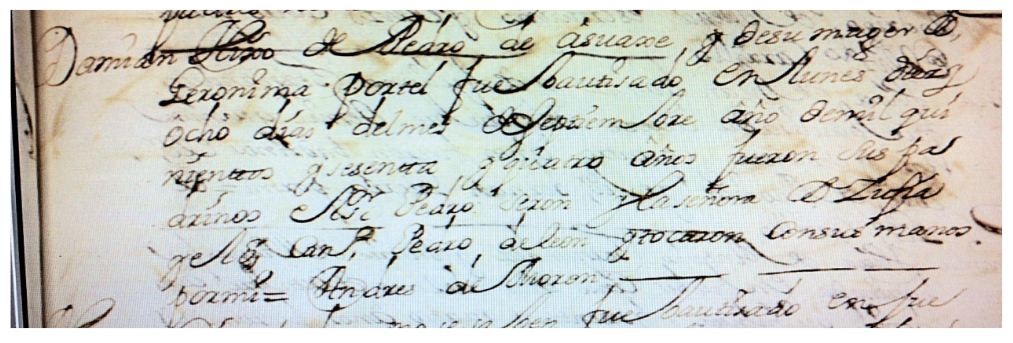 Damian Hixo de Pedro de asuaxe, y de su muger D,
Geronima Dortel fue bautisado En lunes diez y
ocho dias del mes de septiembre año de mil qui
nientos y sesenta y quatro años fueron sus pa
drinos el Pedro seron y la señora D
y el Can. Pedro de leon y tocaron consus manos
por mi = Andres de Moron
fue bautisado en fue